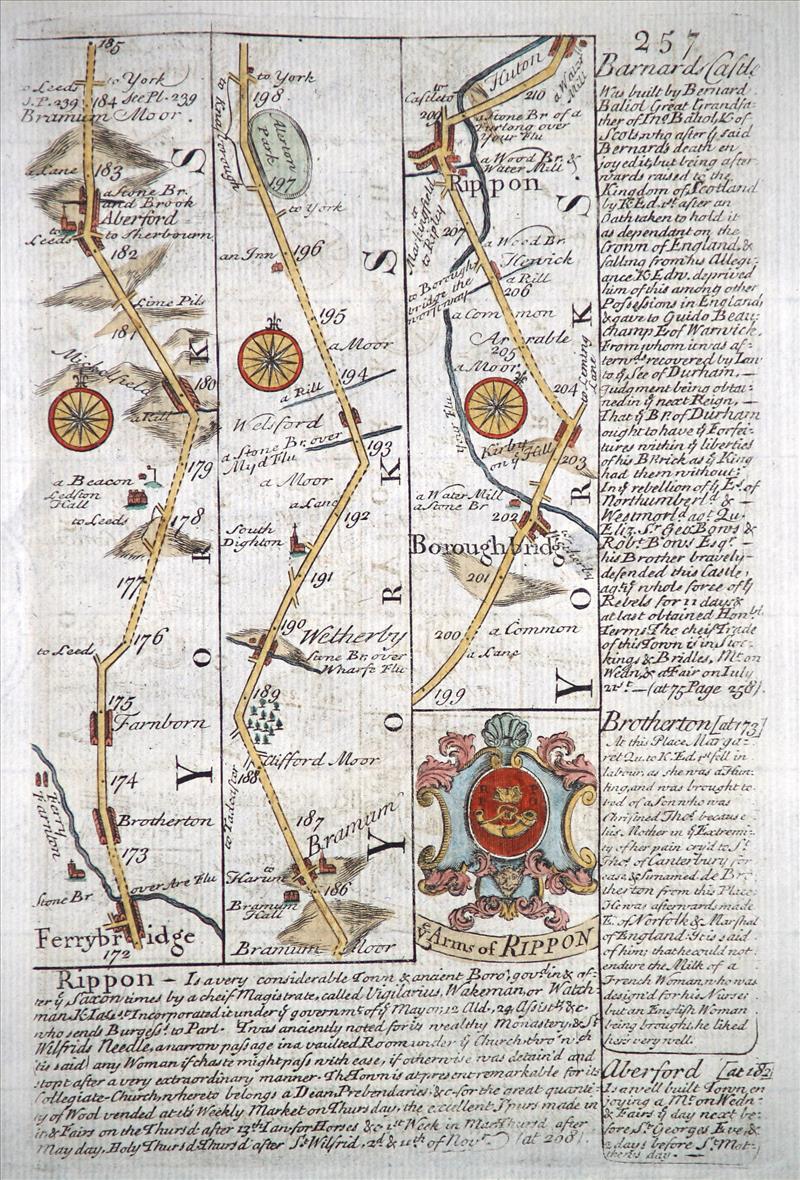 257
Barnards Castle
Was built by Bernard
Baliol Great Grandfa
ther of Jno. Baliol K. of
Scots who after ye said
Bernards death en
joyed it, but being after
wards raised to the
Kingdom of Scotland
by K. Ed. 1st after an
Oath taken to hold it
as dependant on the
Crown of England, &
falling from his Allegi
ance K. Edw. deprived
him of this among other
Possessions in England
& gave to Guido Beau
champ E. of Warwick,
From whom it was af
terwds. recovered by Law
to ye See of Durham,
Judgment being obtai
ned in ye next Reign,
That ye Bp. of Durham
ought to have ye Forfei
tures within ye liberties
of his Bprick as ye King
had them without;
In ye rebellion of ye E. of
Northumberld. &
Westmorld. agt. Qu.
Eliz. Sr. Geo. Bows &
Robt. Bows Esqr.
his Brother bravely
defended this Castle,
agt. ye whole force of ye
Rebels for 11 days &
at last obtained Honble.
Terms. The cheif Trade
of this Town is in Stoc
kings & Bridles, Mt. on
Wedn. & a Fair on July
(at 75 Page 258).
Brotherton [at 173]
At this Place Marga
ret Qu. to K. Ed. 1st fell in
labour, as she was a Hun
ting, and was brought to
bed of a Son who was
Christned Thos. because
his Mother in ye Extremi
ty of her pain cry'd to St.
Thos. of Canterbury for
ease, & sirnamed de Bro
therton from this Place
He was afterwards made
E. of Norfolk & Marshal
of England. It is said
of him that he could not
endure the Milk of a
French Woman, who was
design'd for his Nurse
but an English Woman
being brought, he liked
hers very well.
Aberford [at 182]
Is a well built Town, en
joying a Mt. on Wedn.
& Fairs ye day next be
fore St. Georges Eve, &
2 days before St. Mat
thew's day.
185
to Leeds
to York
J. P. 239
184
See Pl. 239
Bramum Moor
a Lane
183
a Stone Br.
and Brook
Aberford
to Leeds
to Sherbourn
182
Lime Pits
181
Micklefield
180
a Rill
179
a Beacon
Ledston
Hall
to Leeds
178
177
176
to Leed
175
Farnborn
174
Ferry
Farnton
Brotherton
173
Stone Br over Are Flu
Ferrybridge
172
YORKS
to York
198
to Knasborough
Alerton
Park
197
to York
an Inn
196
195
a Moor
194
a Rill
Welsford
a Stone Br. over
Myd Flu
193
a Moor
a Lane
192
South
Dighton
191
190
Wetherby
Stone Br. over
Wharfe Flu
189
Clifford Moor
188
to Tadcaster
187
Bramum
to Harum
186
Bramum
Hall
Bramum Moor
YORKS
Huton
a Water
Mill
210
209
a Stone Br. of a
Furlong over
Your Flu
a Wood Br. &
Water Mill
Rippon
to Markingfield
to Ripley
207
a Wood Br.
Hewick
a Rill
206
to Borough
bridge the
worst way
a Common
Arrable
205
a Moor
204
to Leming
Lane
Your Flu
Kirby
on ye Hill
203
a Water Mill
a Stone Br
202
Boroughbridg
201
200
a Common
a Lane
199
YORKS
ye Arms of RIPPON
Rippon – Is a very considerable Town & ancient Boro', gov'd in & af-
ter ye Saxon times by a cheif Magistrate, called Vigilarius, Wakeman, or Watch
man. K. Ja. 1st Incorporated it under ye governmt. of ye Mayor, 12 Ald., 24 Assists. &c.
who sends Burgess's to Parl. 'Twas anciently noted for its wealthy Monastery, & St.
Wilfrids Needle, a narrow passage in a vaulted Room under ye Church, thro' wch.
('tis said) any Woman if chaste might pass with ease, if otherwise was detain'd and
stopt after a very extraordinary manner. The Town is at present remarkable for its
Collegiate-Church, whereto belongs a Dean, Prebendaries, &c. for the great quanti
ty of Wool vended at its Weekly Market on Thursday, the excellent Spurs made in
it, & Fairs on the Thursd. after 13th Jan. for Horses &c. 1st Week in Mar. Thursd. after
May day, Holy Thursd. Thursd. after St. Wilfrid, 2d & 11th of Novr. (at 208)